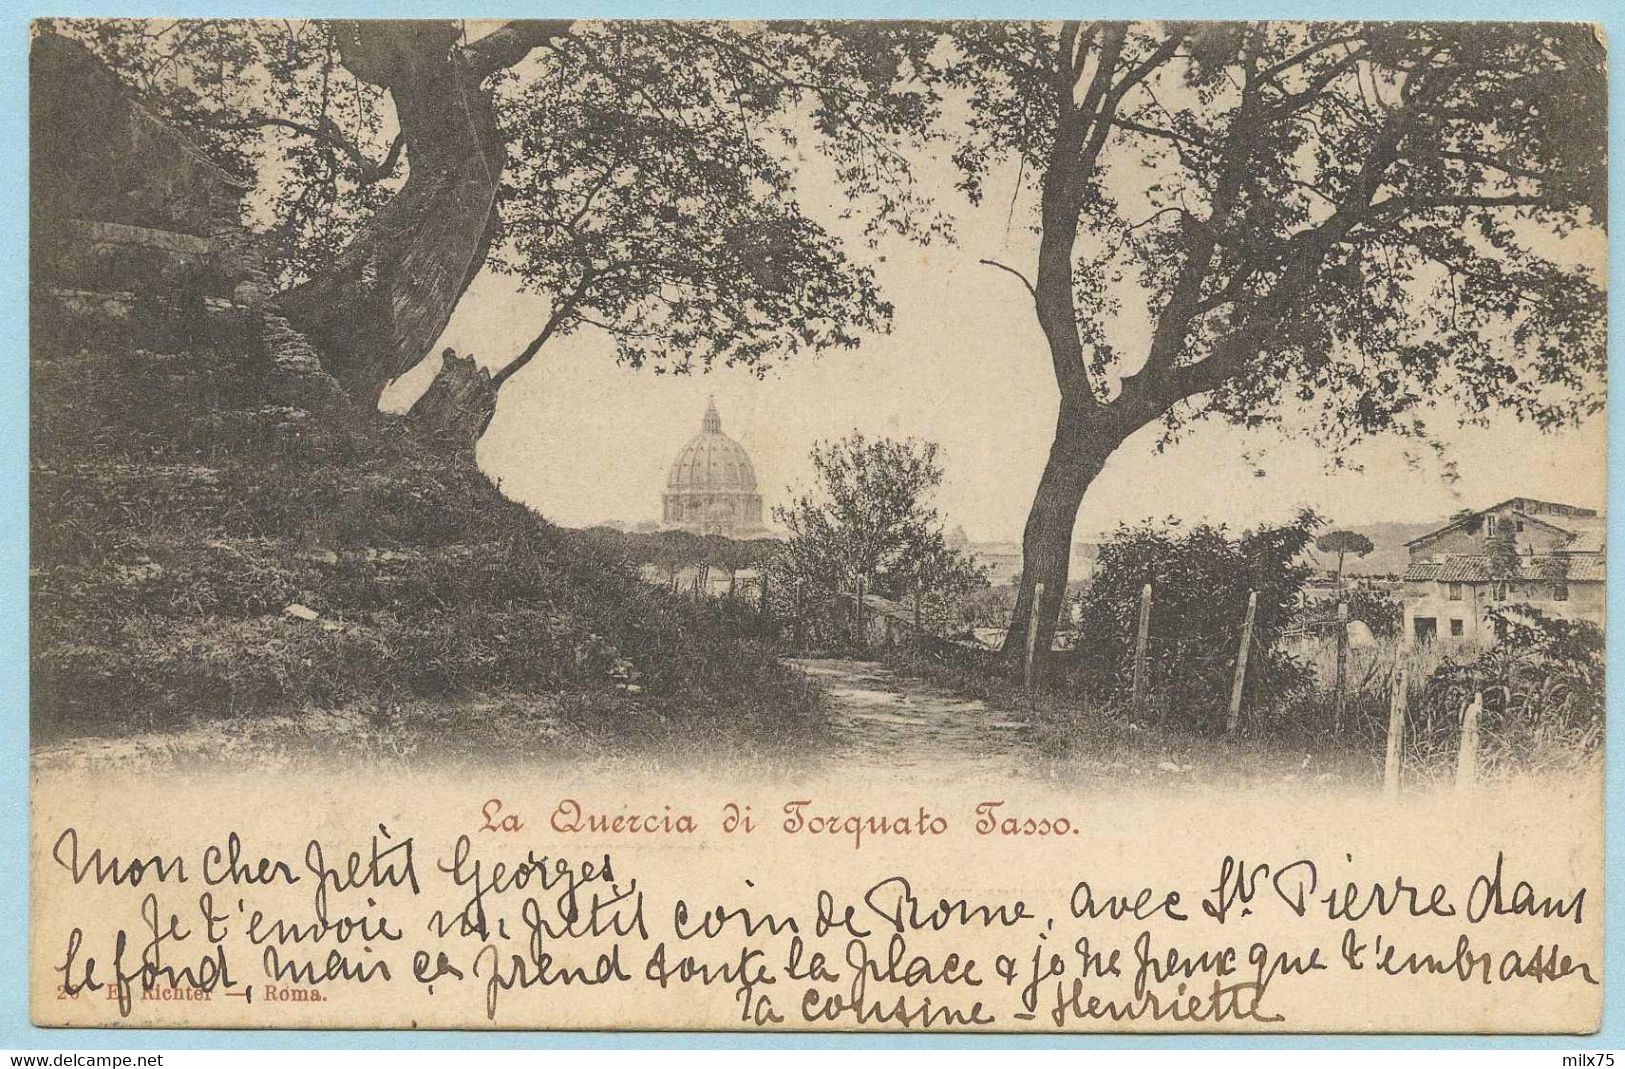 La Quercia di Torquato Tasso.
Mon cher petit Georges,
Je t'envoie un petit coin de Rome, avec St. Pierre dans
le fond, mais ça prend toute la place & je ne peux que t'embrasser
Ta cousine - Henriette
26 E. Richter — Roma.
milx75